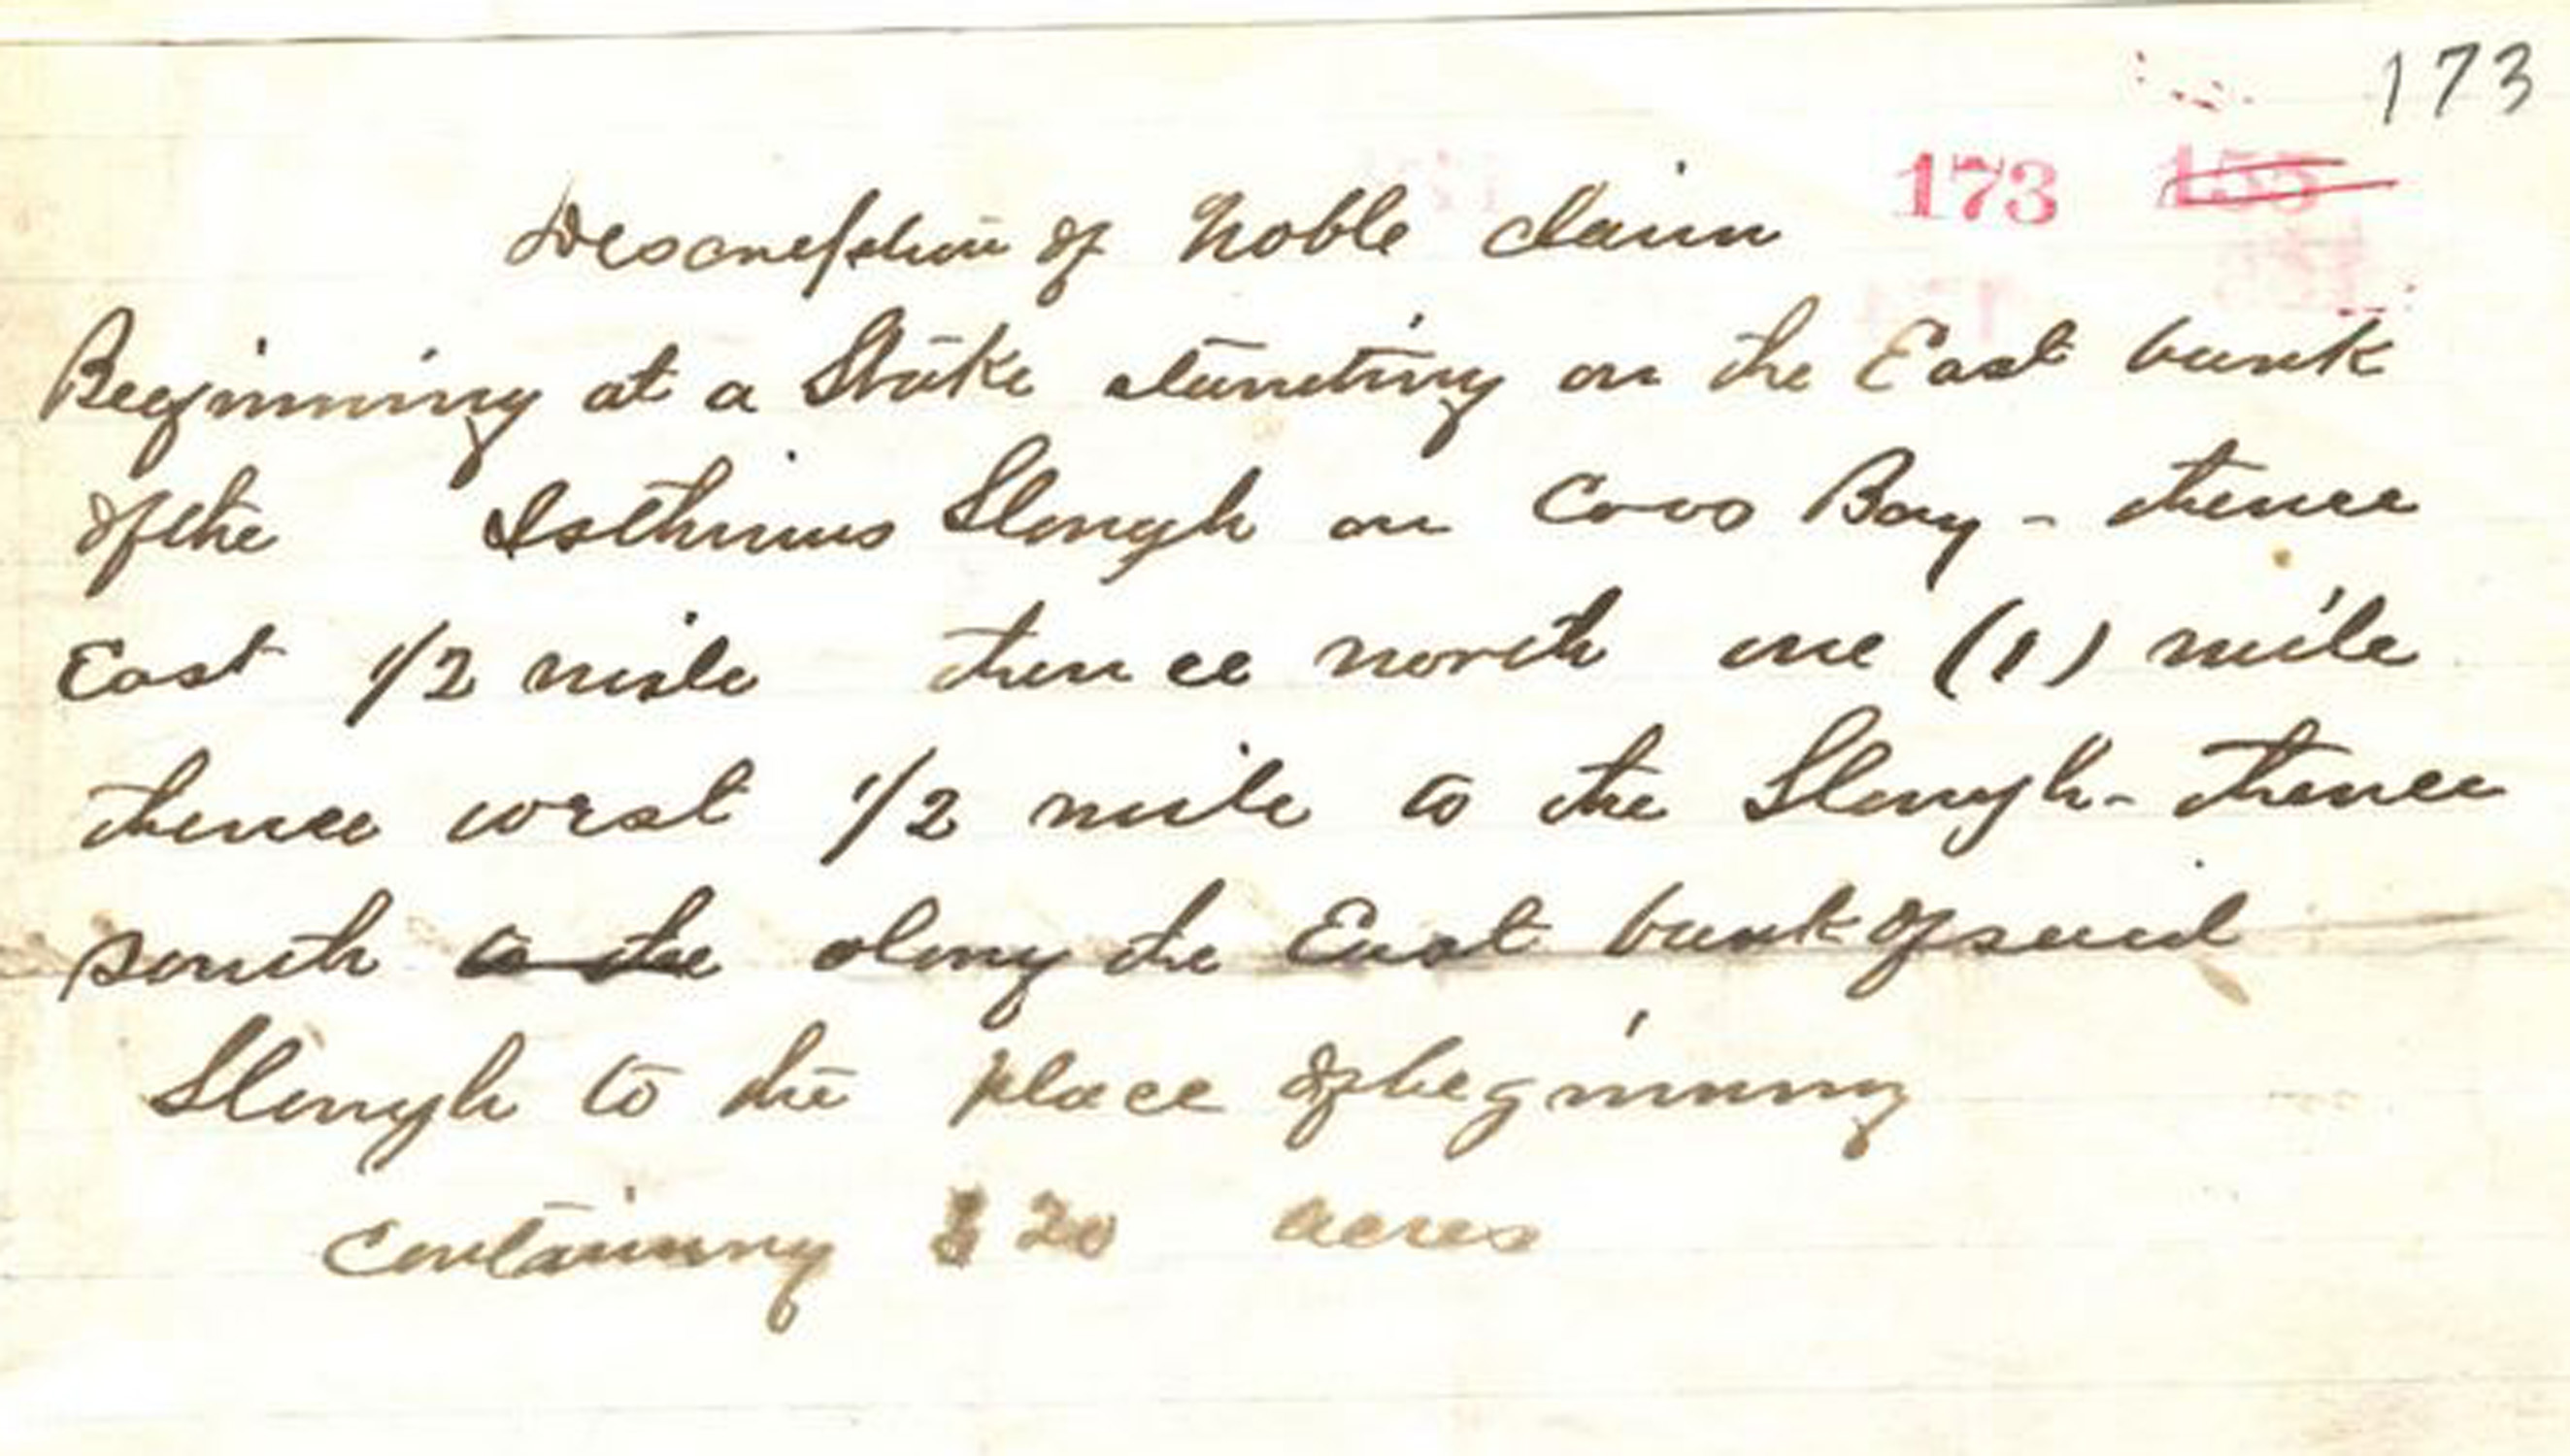 173
173 155
Description of Noble claim
Beginning at a Stake standing on the East bank
of the Isthmus Slough on Coos Bay - thence
East 1/2 mile thence north one (1) mile
thence west 1/2 mile to the Slough - thence
south to the along the East bank of said
Slough to the place of beginning
Containing 320 acres